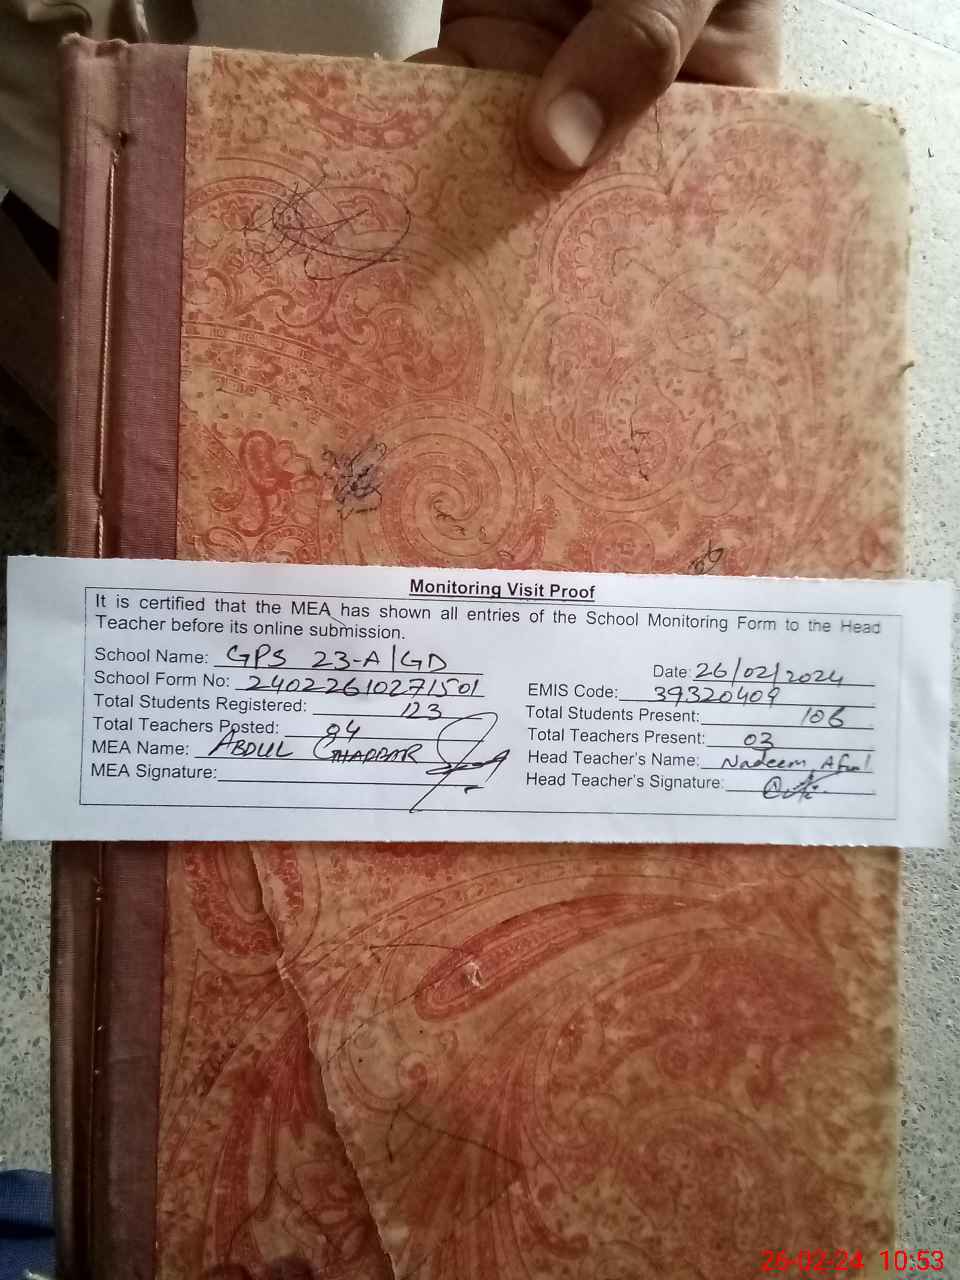 Monitoring Visit Proof
It is certified that the MEA has shown all entries of the School Monitoring Form to the Head
Teacher before its online submission.
School Name: GPS 23-A/GD
Date: 26/02/2024
School Form No: 24022610271501
EMIS Code: 39320409
Total Students Registered: 123
Total Students Present: 106
Total Teachers Posted: 04
Total Teachers Present: 03
MEA Name: ABDUL GHAFFAR
Head Teacher's Name: Nadeem Afzal
MEA Signature:
Head Teacher's Signature:
26-02-24 10:53